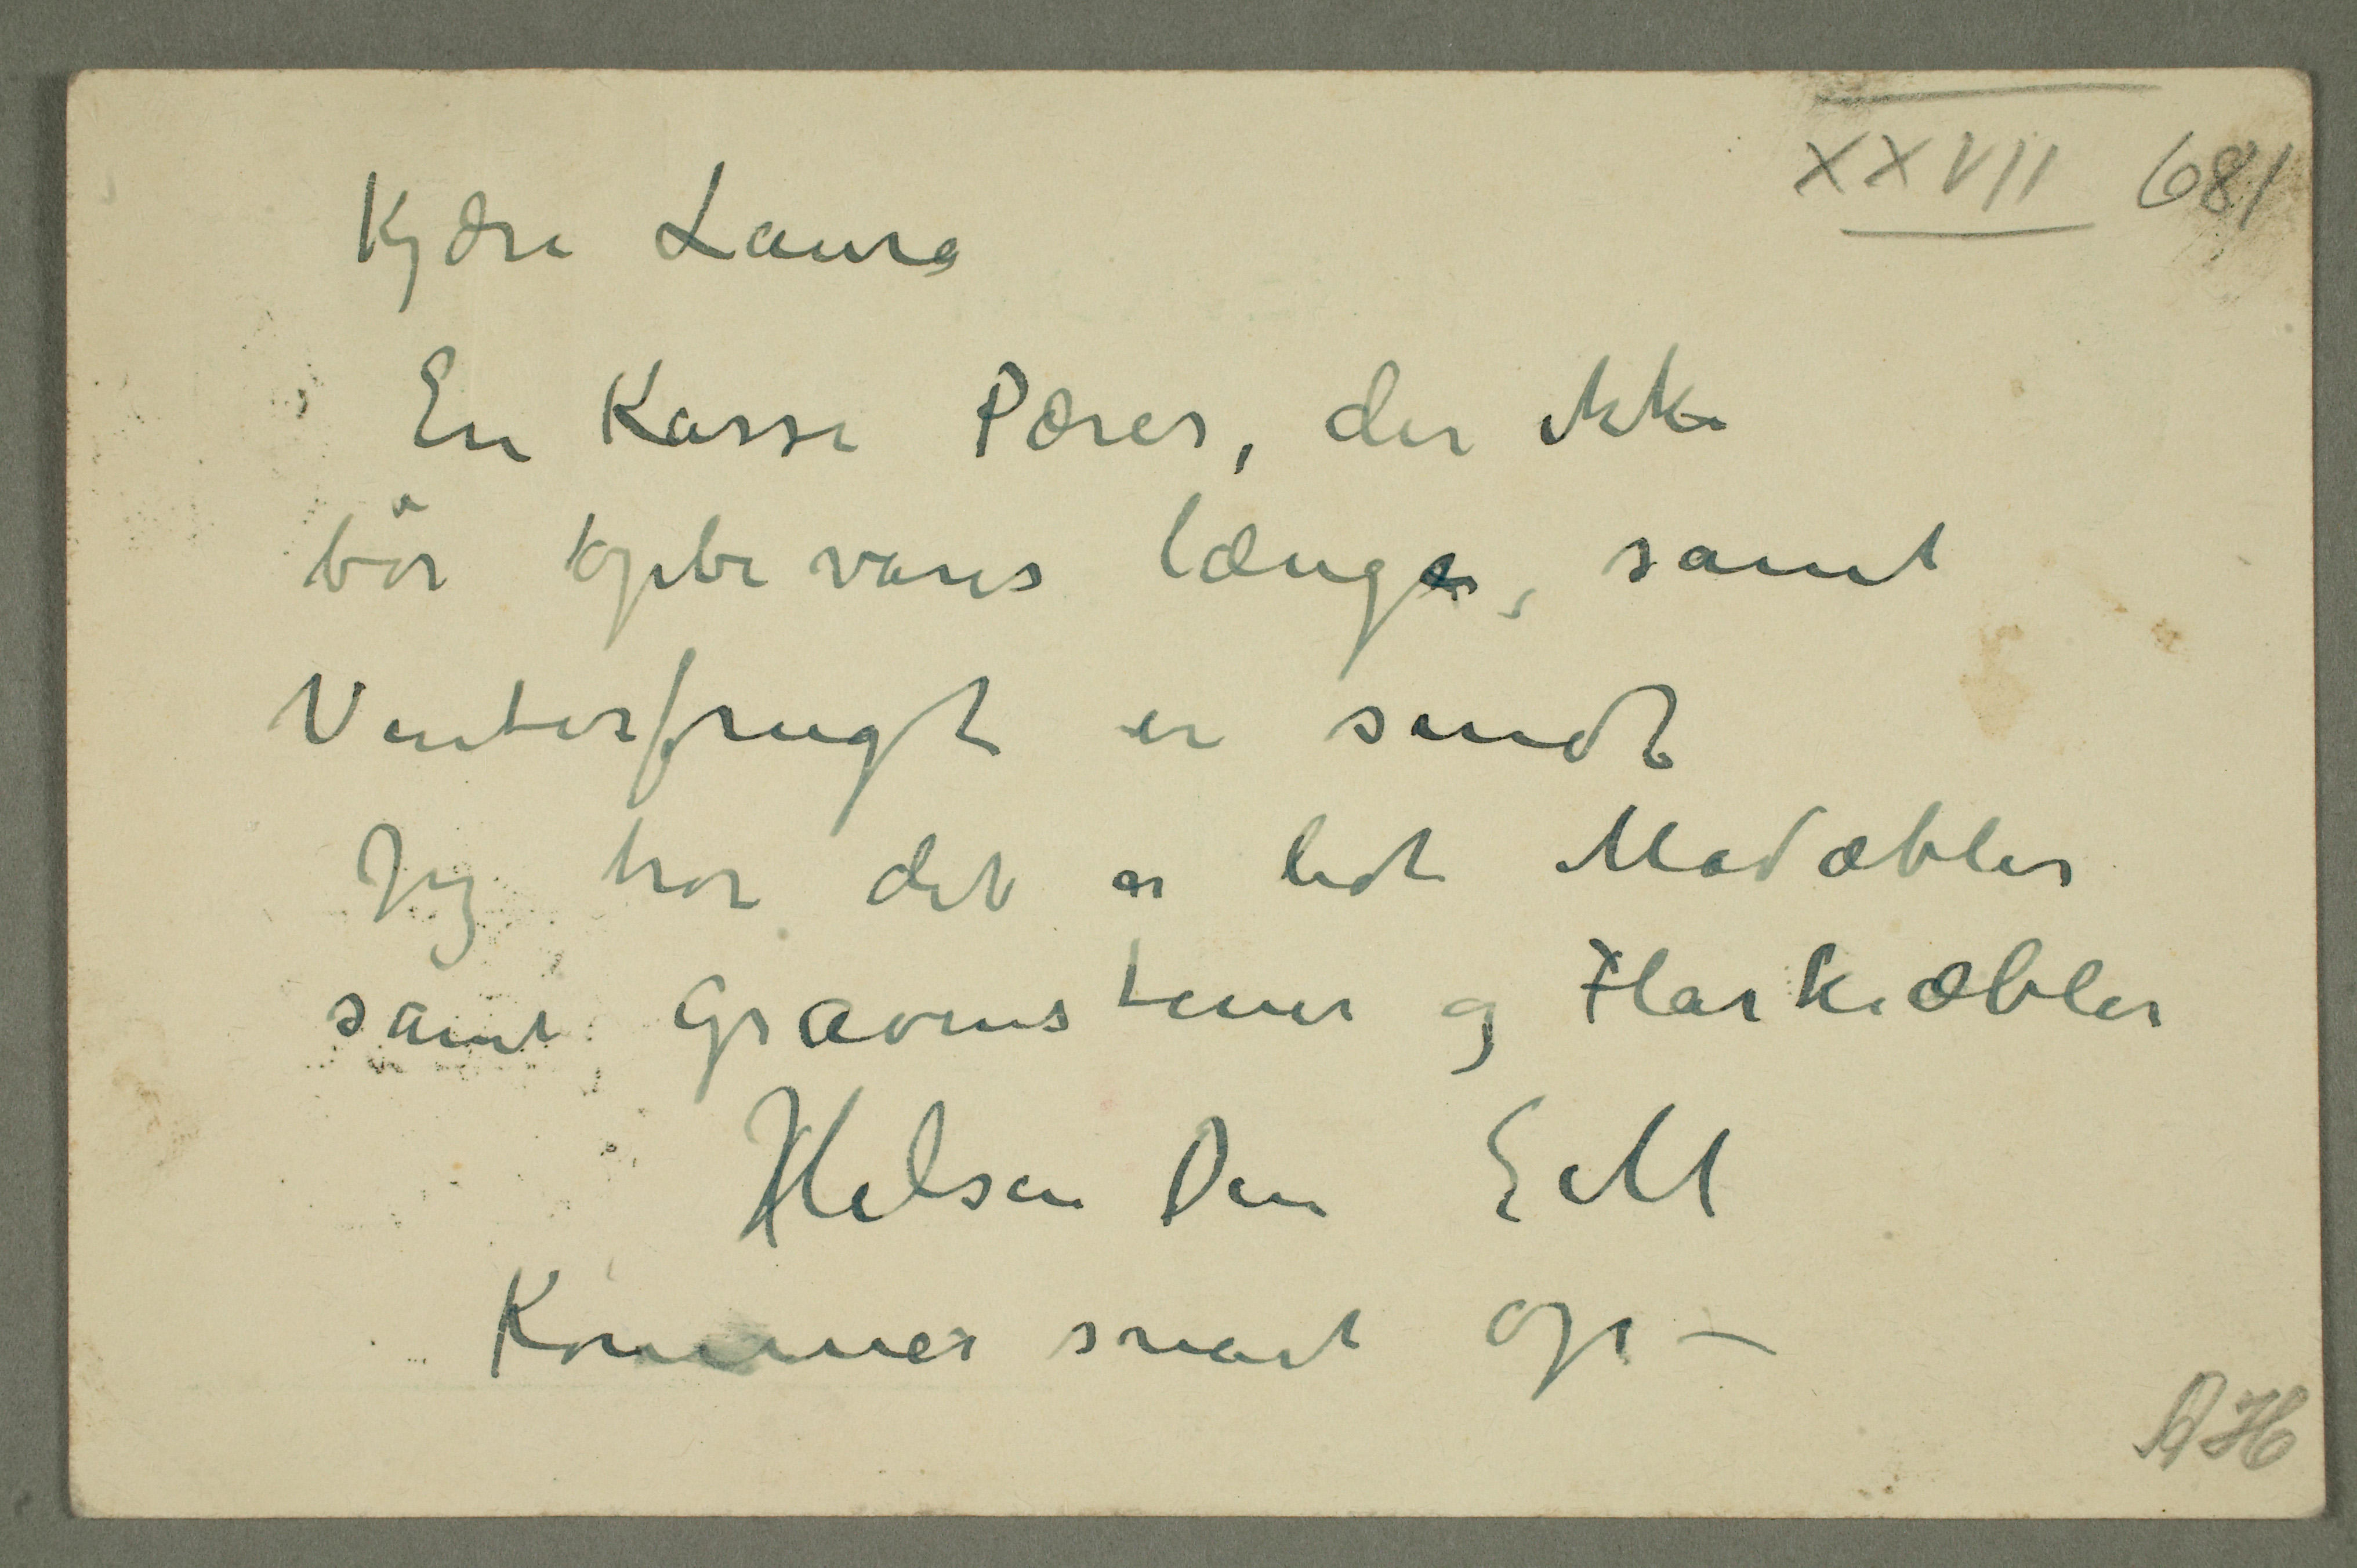 XXVII 681
Kjære Laura
En Kasse Pærer, der ikke
bör opbevares længe, samt
Vinterfrugt er sendt
Jeg tror det er lidt Madæbler
samt Gravenstener og Flaskeæbler
Hilsen Din EM
Kommer snart op –
AH